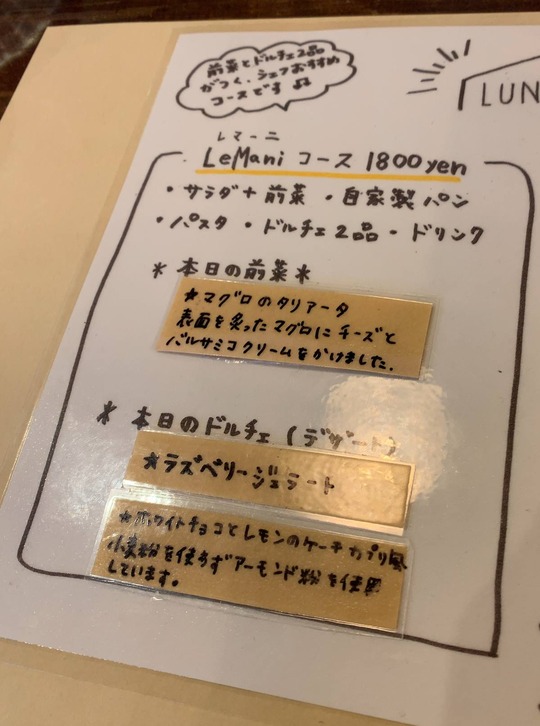 前菜とドルチェ2品
がつく、シェフおすすめ
コースです♫
LUN
レマーニ
LeMani コース 1800yen
・サラダ+前菜 ・自家製パン
・パスタ ・ドルチェ2品 ・ドリンク
＊本日の前菜＊
★マグロのタリアータ
表面を炙ったマグロにチーズと
バルサミコクリームをかけました.
＊本日のドルチェ(デザート)
★ラズベリージェラート
★ホワイトチョコとレモンのケーキ カプリ風
小麦粉を使わずアーモンド粉を使用
しています。